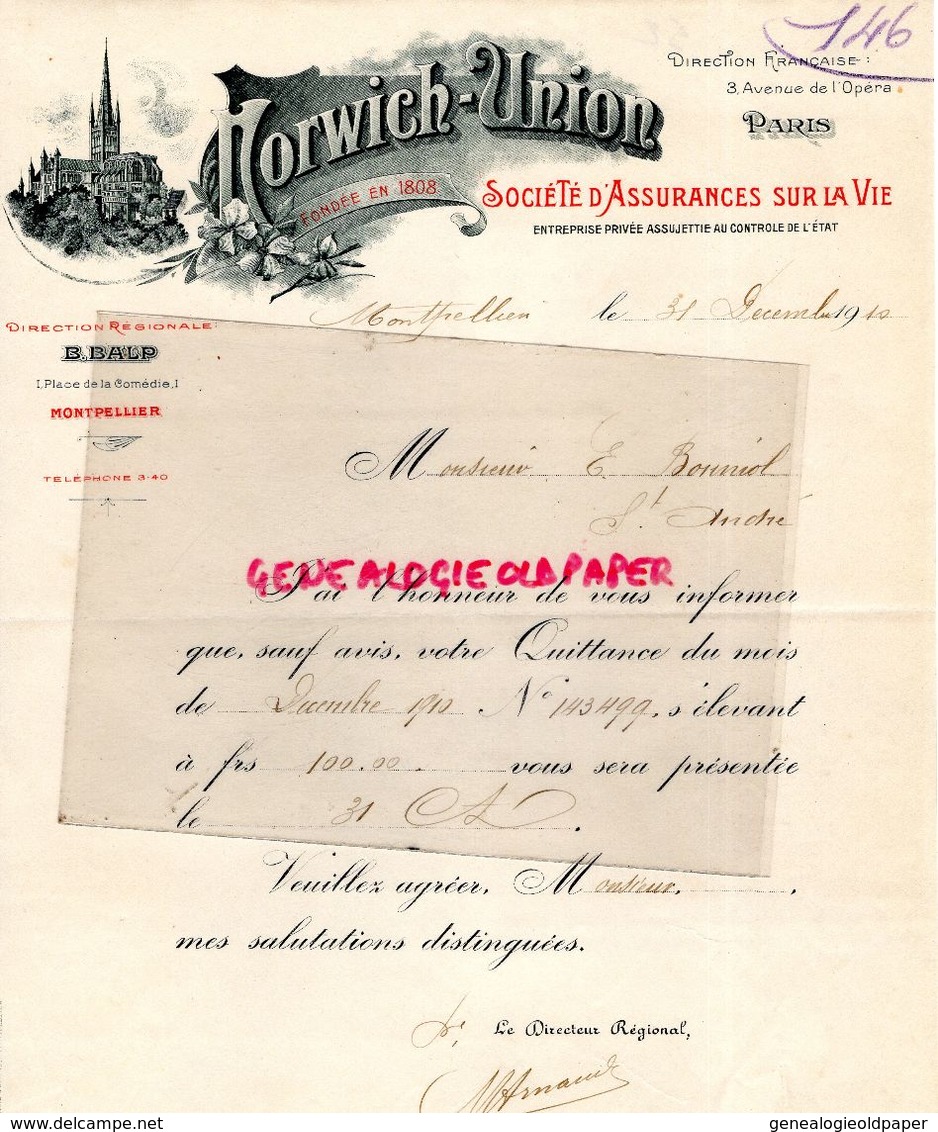 146
DIRECTION FRANÇAISE:
3, Avenue de l'Opéra
PARIS
Norwich-Union
FONDÉE EN 1808
SOCIÉTÉ D'ASSURANCES SUR LA VIE
ENTREPRISE PRIVÉE ASSUJETTIE AU CONTROLE DE L'ÉTAT
Montpellier le 31 Decembre 1910
DIRECTION RÉGIONALE:
B. BALP
1, Place de la Comédie, 1
MONTPELLIER
TÉLÉPHONE 3-40
Monsieur E Bonniol
St. André
GENEALOGIE OLD PAPER
J'ai l'honneur de vous informer
que, sauf avis, votre Quittance du mois
de Decembre 1910 No 143499, s'élevant
à frs 100.00. vous sera présentée
le 31 Ct.
Veuillez agréer, Monsieur,
mes salutations distinguées.
Le Directeur Régional,
Arnaud
genealogieoldpaper